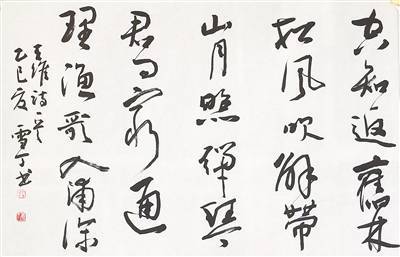 空知返舊林
松風吹解帶
山月照彈琴
君問窮通
理漁歌入浦深
王維詩一首
乙巳夏雪丁书